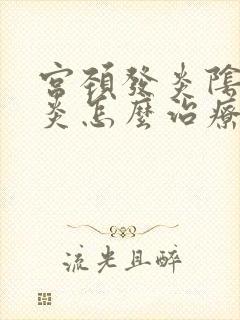 宮頚發炎陰
炎怎麼治療
流光且醉